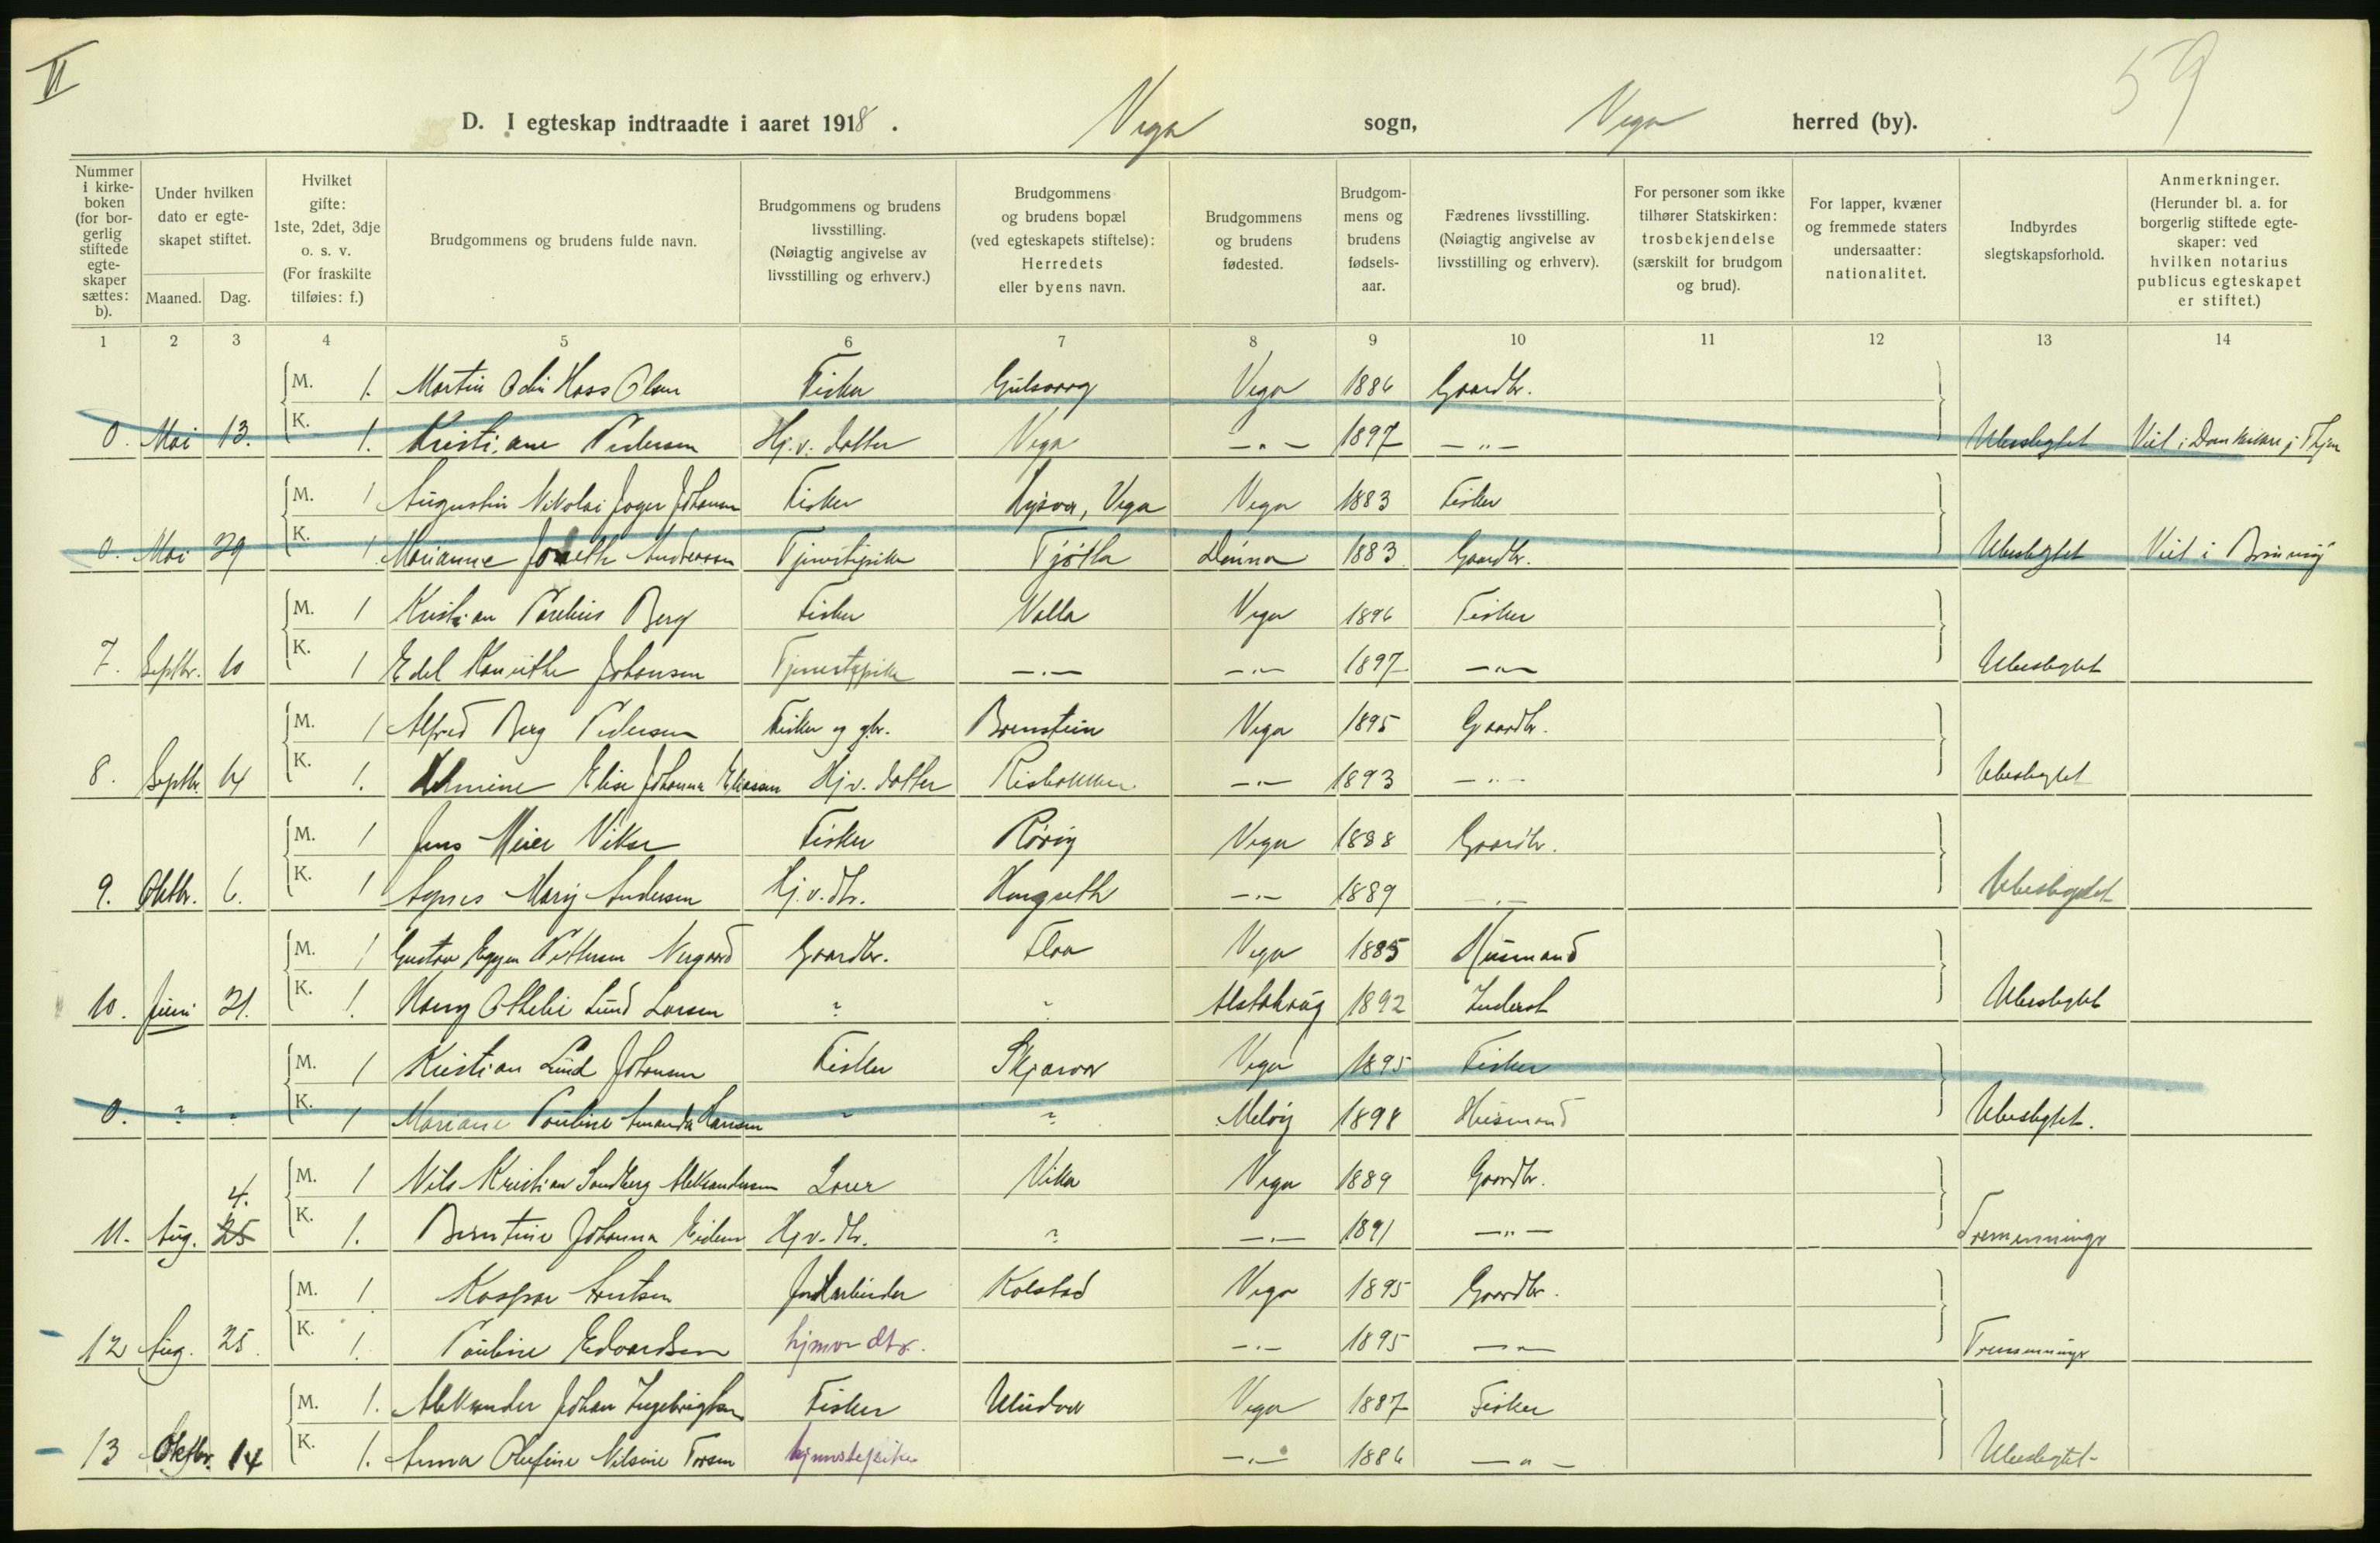 II
59
D. I egteskap indtraadte i aaret 1918. Vega sogn, Vega herred (by).
Nummer i kirkeboken (for borgerlig stiftede egteskaper sættes: b).
Under hvilken dato er egteskapet stiftet.
Maaned. Dag.
Hvilket gifte: 1ste, 2det, 3dje o. s. v. (For fraskilte tilføies: f.)
Brudgommens og brudens fulde navn.
Brudgommens og brudens livsstilling. (Nøiagtig angivelse av livsstilling og erhverv.)
Brudgommens og brudens bopæl (ved egteskapets stiftelse): Herredets eller byens navn.
Brudgommens og brudens fødested.
Brudgommens og brudens fødselsaar.
Fædrenes livsstilling. (Nøiagtig angivelse av livsstilling og erhverv).
For personer som ikke tilhører Statskirken: trosbekjendelse (særskilt for brudgom og brud).
For lapper, kvæner og fremmede staters undersaatter: nationalitet.
Indbyrdes slegtskapsforhold.
Anmerkninger. (Herunder bl. a. for borgerlig stiftede egteskaper: ved hvilken notarius publicus egteskapet er stiftet.)
1 2 3 4 5 6 7 8 9 10 11 12 13 14
M. 1. Martin Odin Hass Olsen Fisker Gulsvaag Vega 1886 Gaardbr.
0. Mai 13. K. 1. Kristiane Pedersen Hj.v. datter Vega —"— 1897 —"— Ubeslegtet Viet i Domkirken i Thjem
M. 1 Augustin Nikolai Jager Johansen Fisker Vega Vega 1883 Fisker
0. Mai 29 K. 1 Marianne Andersen Tjenestepike Tjøtta Dønna 1883 Gaardbr. Ubeslegtet Viet i Brønnøy
M. 1 Kristian Parelius Berg Fisker Valla Vega 1896 Fisker
7. Septbr. 10 K. 1 Edel Johansen Tjenestepike —"— —"— 1897 —"— Ubeslegtet
M. 1 Alfred Berg Pedersen Fisker og gbr. Brenstein Vega 1895 Gaardbr.
8. Septbr. 14 K. 1. Elise Johanna Eliassen Hj.v. datter —"— 1893 —"— Ubeslegtet
M. 1 Jens Meier Vikse Fisker Rørøy Vega 1888 Gaardbr.
9. Oktbr. 6. K. 1 Agnes Mary Andersen Hj.v.dtr. —"— 1889 —"— Ubeslegtet
M. 1 Gustav Pettersen Nergaard Gaardbr. Floa Vega 1885 Husmand
10. Juni 21. K. 1. Hanny Othelie Lund Larsen " " Alstahaug 1892 Inderst Ubeslegtet
M. 1 Kristian Lund Johansen Fisker Skjærvær Vega 1895 Fisker
0. " " K. 1 Mariane Pauline Amanda Hansen " " Meløy 1898 Husmand Ubeslegtet.
M. 1 Nils Kristian Sandberg Aleksandersen Lærer Vika Vega 1889 Gaardbr.
4.
11. Aug. 25 K. 1. Berntine Johanna Eidem Hj.v. dtr. " —"— 1891 —"— Tremenninger
M. 1. Kaspar Arntsen Jordarbeider Kolstad Vega 1895 Gaardbr.
12 Aug. 25. K. 1. Pauline Edvardsen hjmvr dtr. —"— 1895 —"— Tremenninger
M. 1. Aleksander Johan Ingebrigtsen Fisker Vega 1887 Fisker
13 Oktbr. 14 K. 1. Anna Olufine Nilsine Torsen tjenestepike —"— 1886 —"— Ubeslegtet